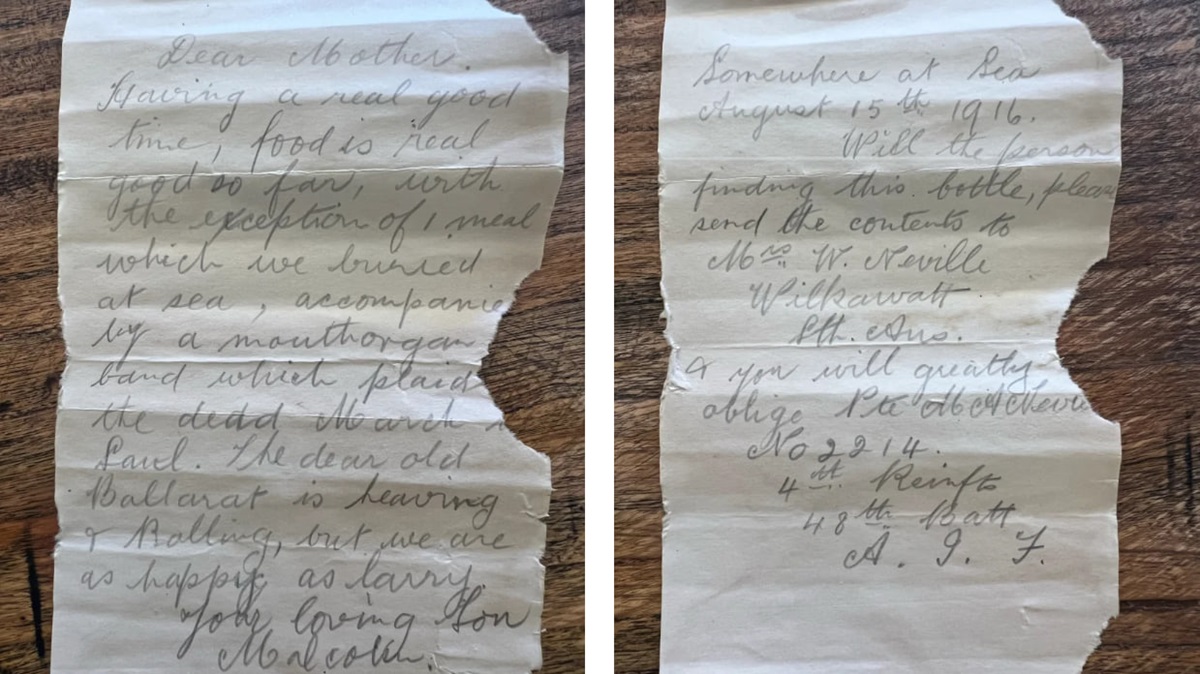 Dear Mother.
Having a real good
time, food is real
good so far, with
the exception of 1 meal
which we buried
at sea, accompanie
by a mouthorgan
band which plaid
the dead March
Saul. The dear old
Ballarat is heaving
& Rolling, but we are
as happy as larry.
Your loving Son
Malcolm.
Somewhere at Sea
August 15th 1916.
Will the person
finding this bottle, pleas
send the contents to
Mrs W. Neville
Wilkawatt
Sth. Aus.
& you will greatly
oblige Pte
No 2214.
4th Reinfts
48th Batt
A. I. F.